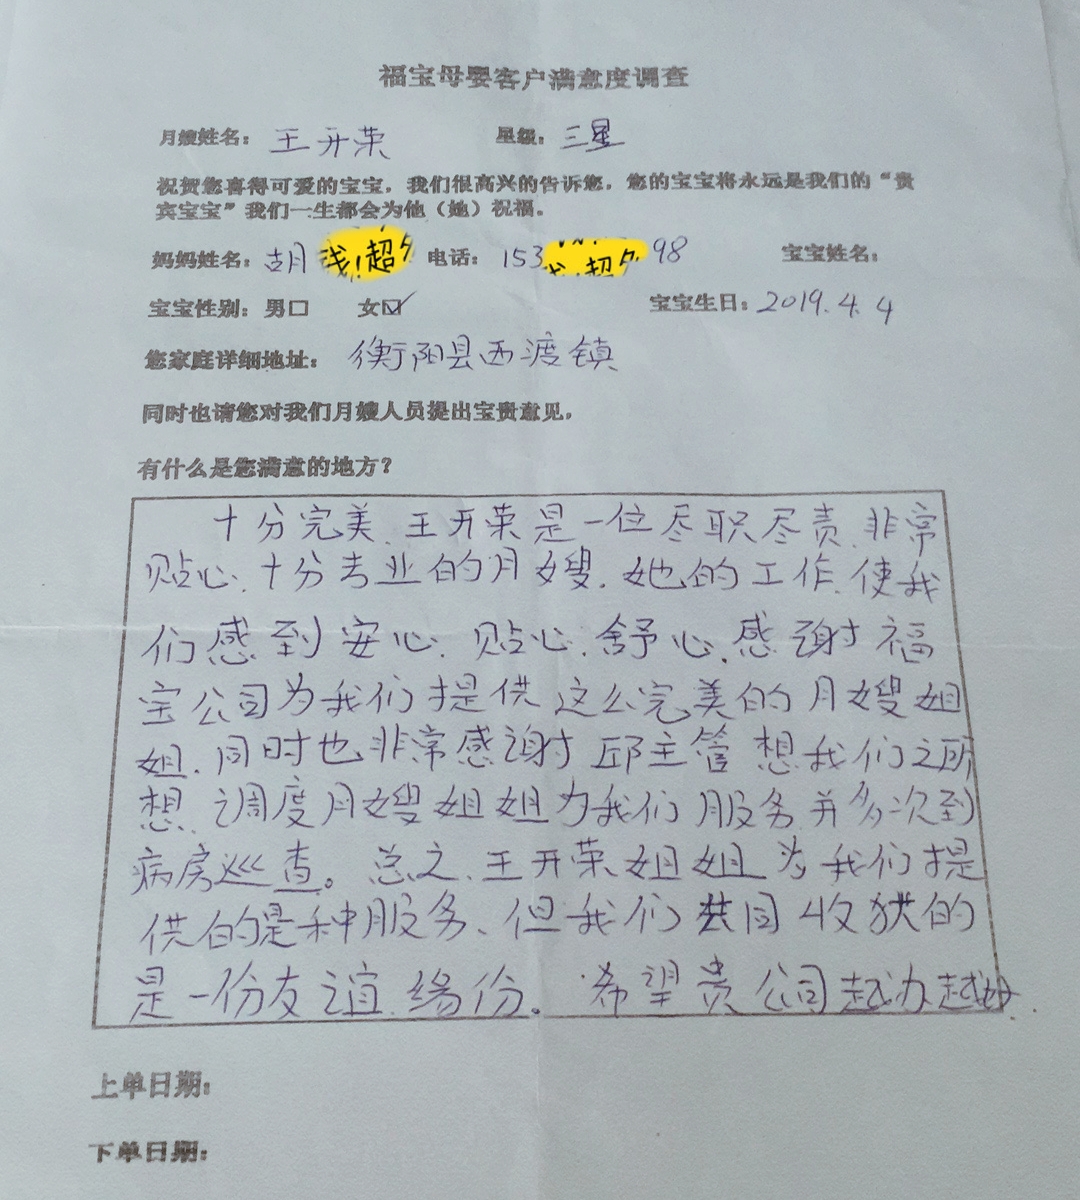 福宝母婴客户满意度调查
月嫂姓名： 王开荣 星级： 三星
祝贺您喜得可爱的宝宝，我们很高兴的告诉您，您的宝宝将永远是我们的“贵
宾宝宝”我们一生都会为他（她）祝福。
妈妈姓名： 胡 浅!超 电话： 153 超 98 宝宝姓名：
宝宝性别： 男□ 女☑ 宝宝生日： 2019.4.4
您家庭详细地址： 衡阳县西渡镇
同时也请您对我们月嫂人员提出宝贵意见。
有什么是您满意的地方？
十分完美、王开荣是一位尽职尽责、非常
贴心、十分专业的月嫂. 她的工作、使我
们感到安心、贴心、舒心、感谢福
宝公司为我们提供这么完美的月嫂姐
姐. 同时也非常感谢邱主管想我们之所
想、调度月嫂姐姐为我们服务并多次到
病房巡查。总之、王开荣姐姐为我们提
供的是种服务、但我们共同收获的
是一份友谊、缘份。希望贵公司越办越好
上单日期：
下单日期：